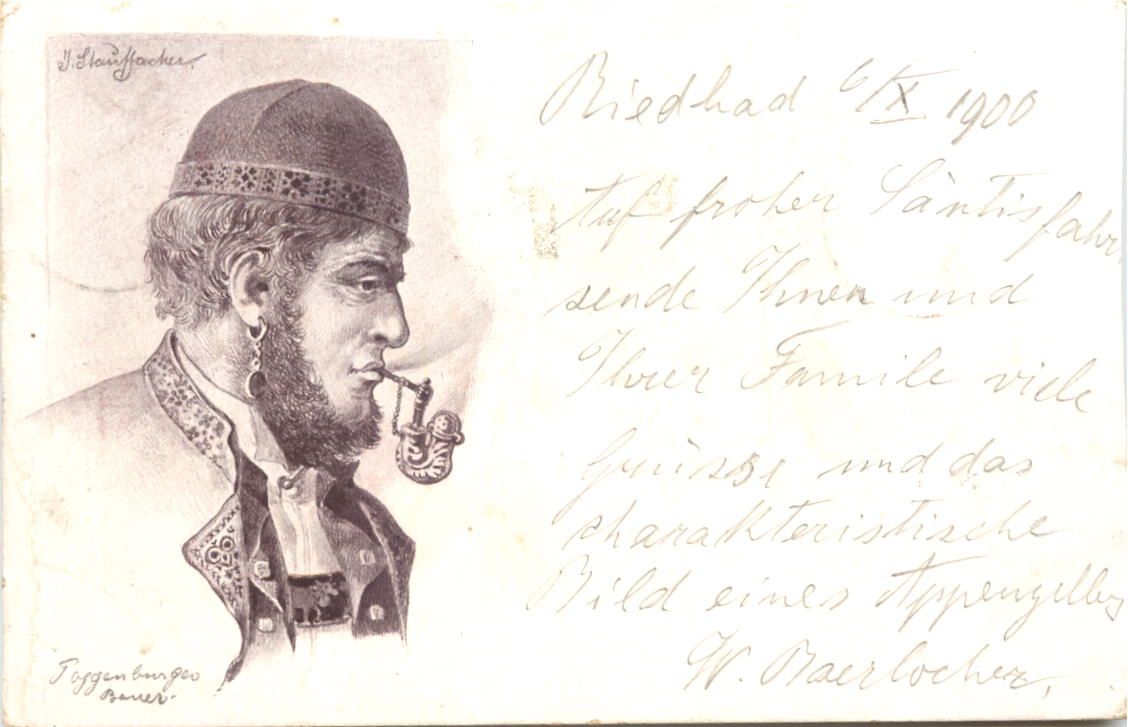 J. Stauffacher.
Riedbad 6/X 1900
Auf froher Säntisfahrt
sende Ihnen und
Ihrer Famile viele
Grüsse und das
charakteristische
Bild eines Appenzellers
W. Baerlocher,
Toggenburger
Bauer.